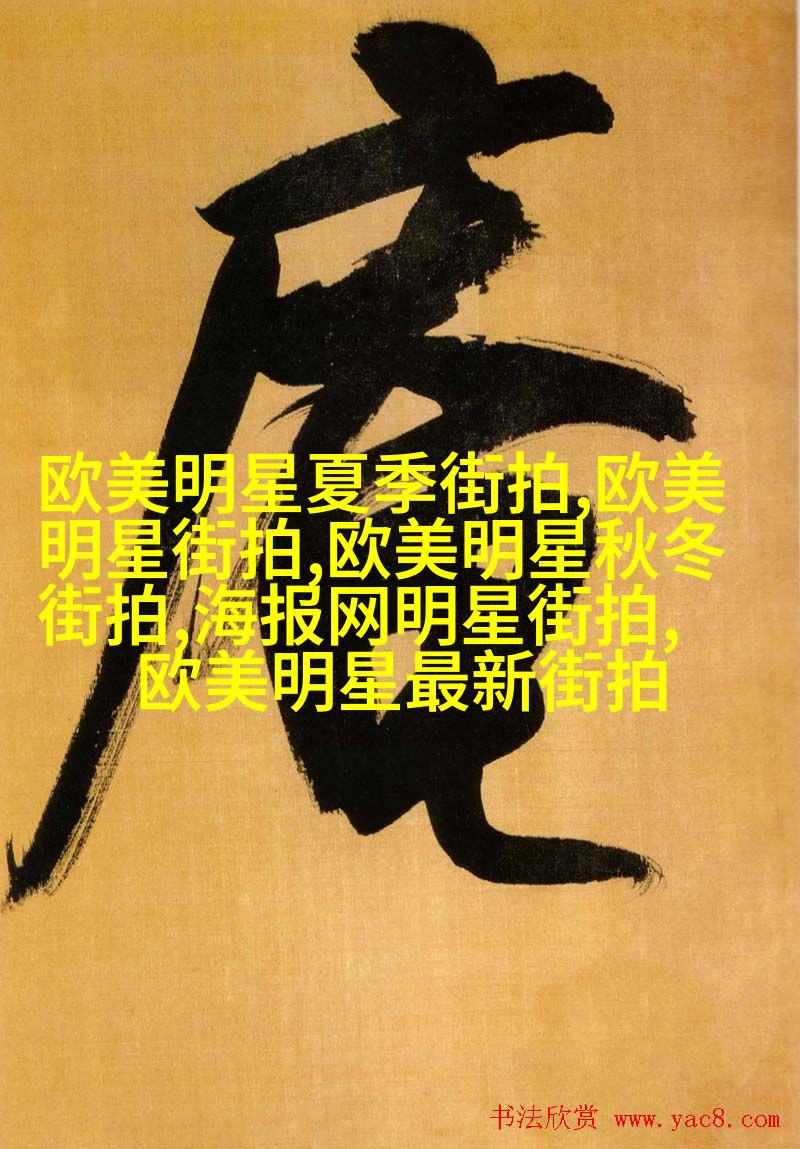 庵
欧美明星夏季街拍,欧美
明星街拍,欧美明星秋冬
街拍,海报网明星街拍,
欧美明星最新街拍
书法欣赏 www.yac8.com